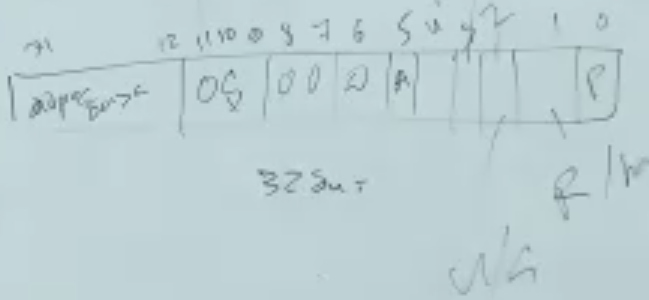 31 12 11 10 9 8 7 6 5 4 3 2 1 0
адрес OS 00 D A P
32 бит
R/W
U/S